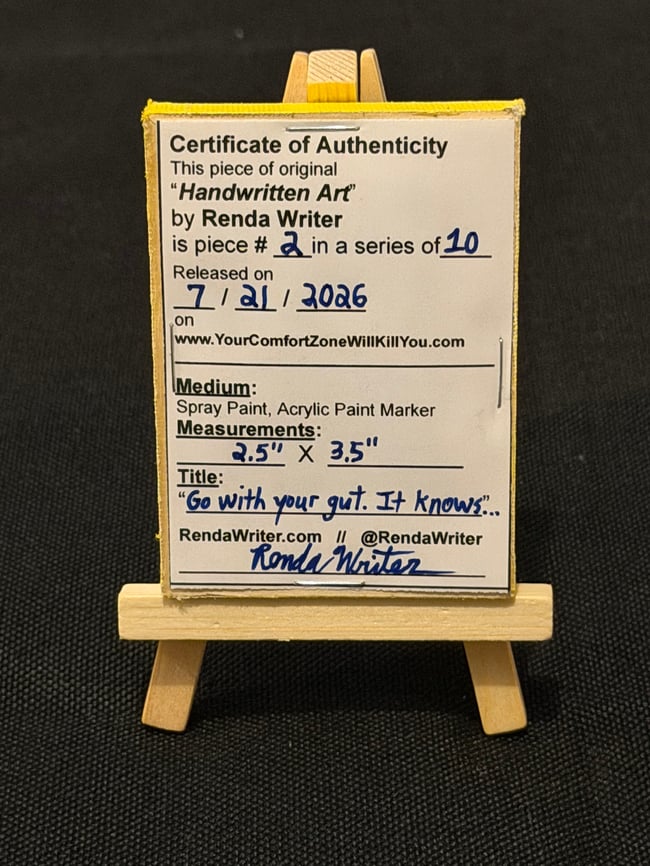 Certificate of Authenticity
This piece of original
"Handwritten Art"
by Renda Writer
is piece # 2 in a series of 10
Released on
7 / 21 / 2026
on
www.YourComfortZoneWillKillYou.com
Medium:
Spray Paint, Acrylic Paint Marker
Measurements:
2.5" X 3.5"
Title:
"Go with your gut. It knows"...
RendaWriter.com // @RendaWriter
Renda Writer